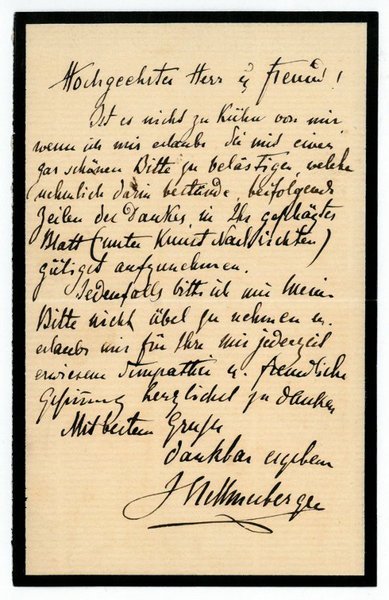 Hochgeehrter Herr u. Freund!
Ist es nicht zu kühn von mir,
wenn ich mir erlaube Sie mit einer
gar schönen Bitte zu belästigen, welche
nehmlich darin bestünde, beifolgende
Zeilen des Dankes in Ihr geschätztes
Blatt (unter Kunst Nachrichten)
gütigst aufzunehmen.
Jedenfalls bitte ich mir meine
Bitte nicht übel zu nehmen u.
erlaube mir für Ihre mir jederzeit
erwiesene Simpathie u. freundliche
Gesinnung herzlichst zu danken
Mit bestem Gruße
dankbar ergebener
J Hellmesberger